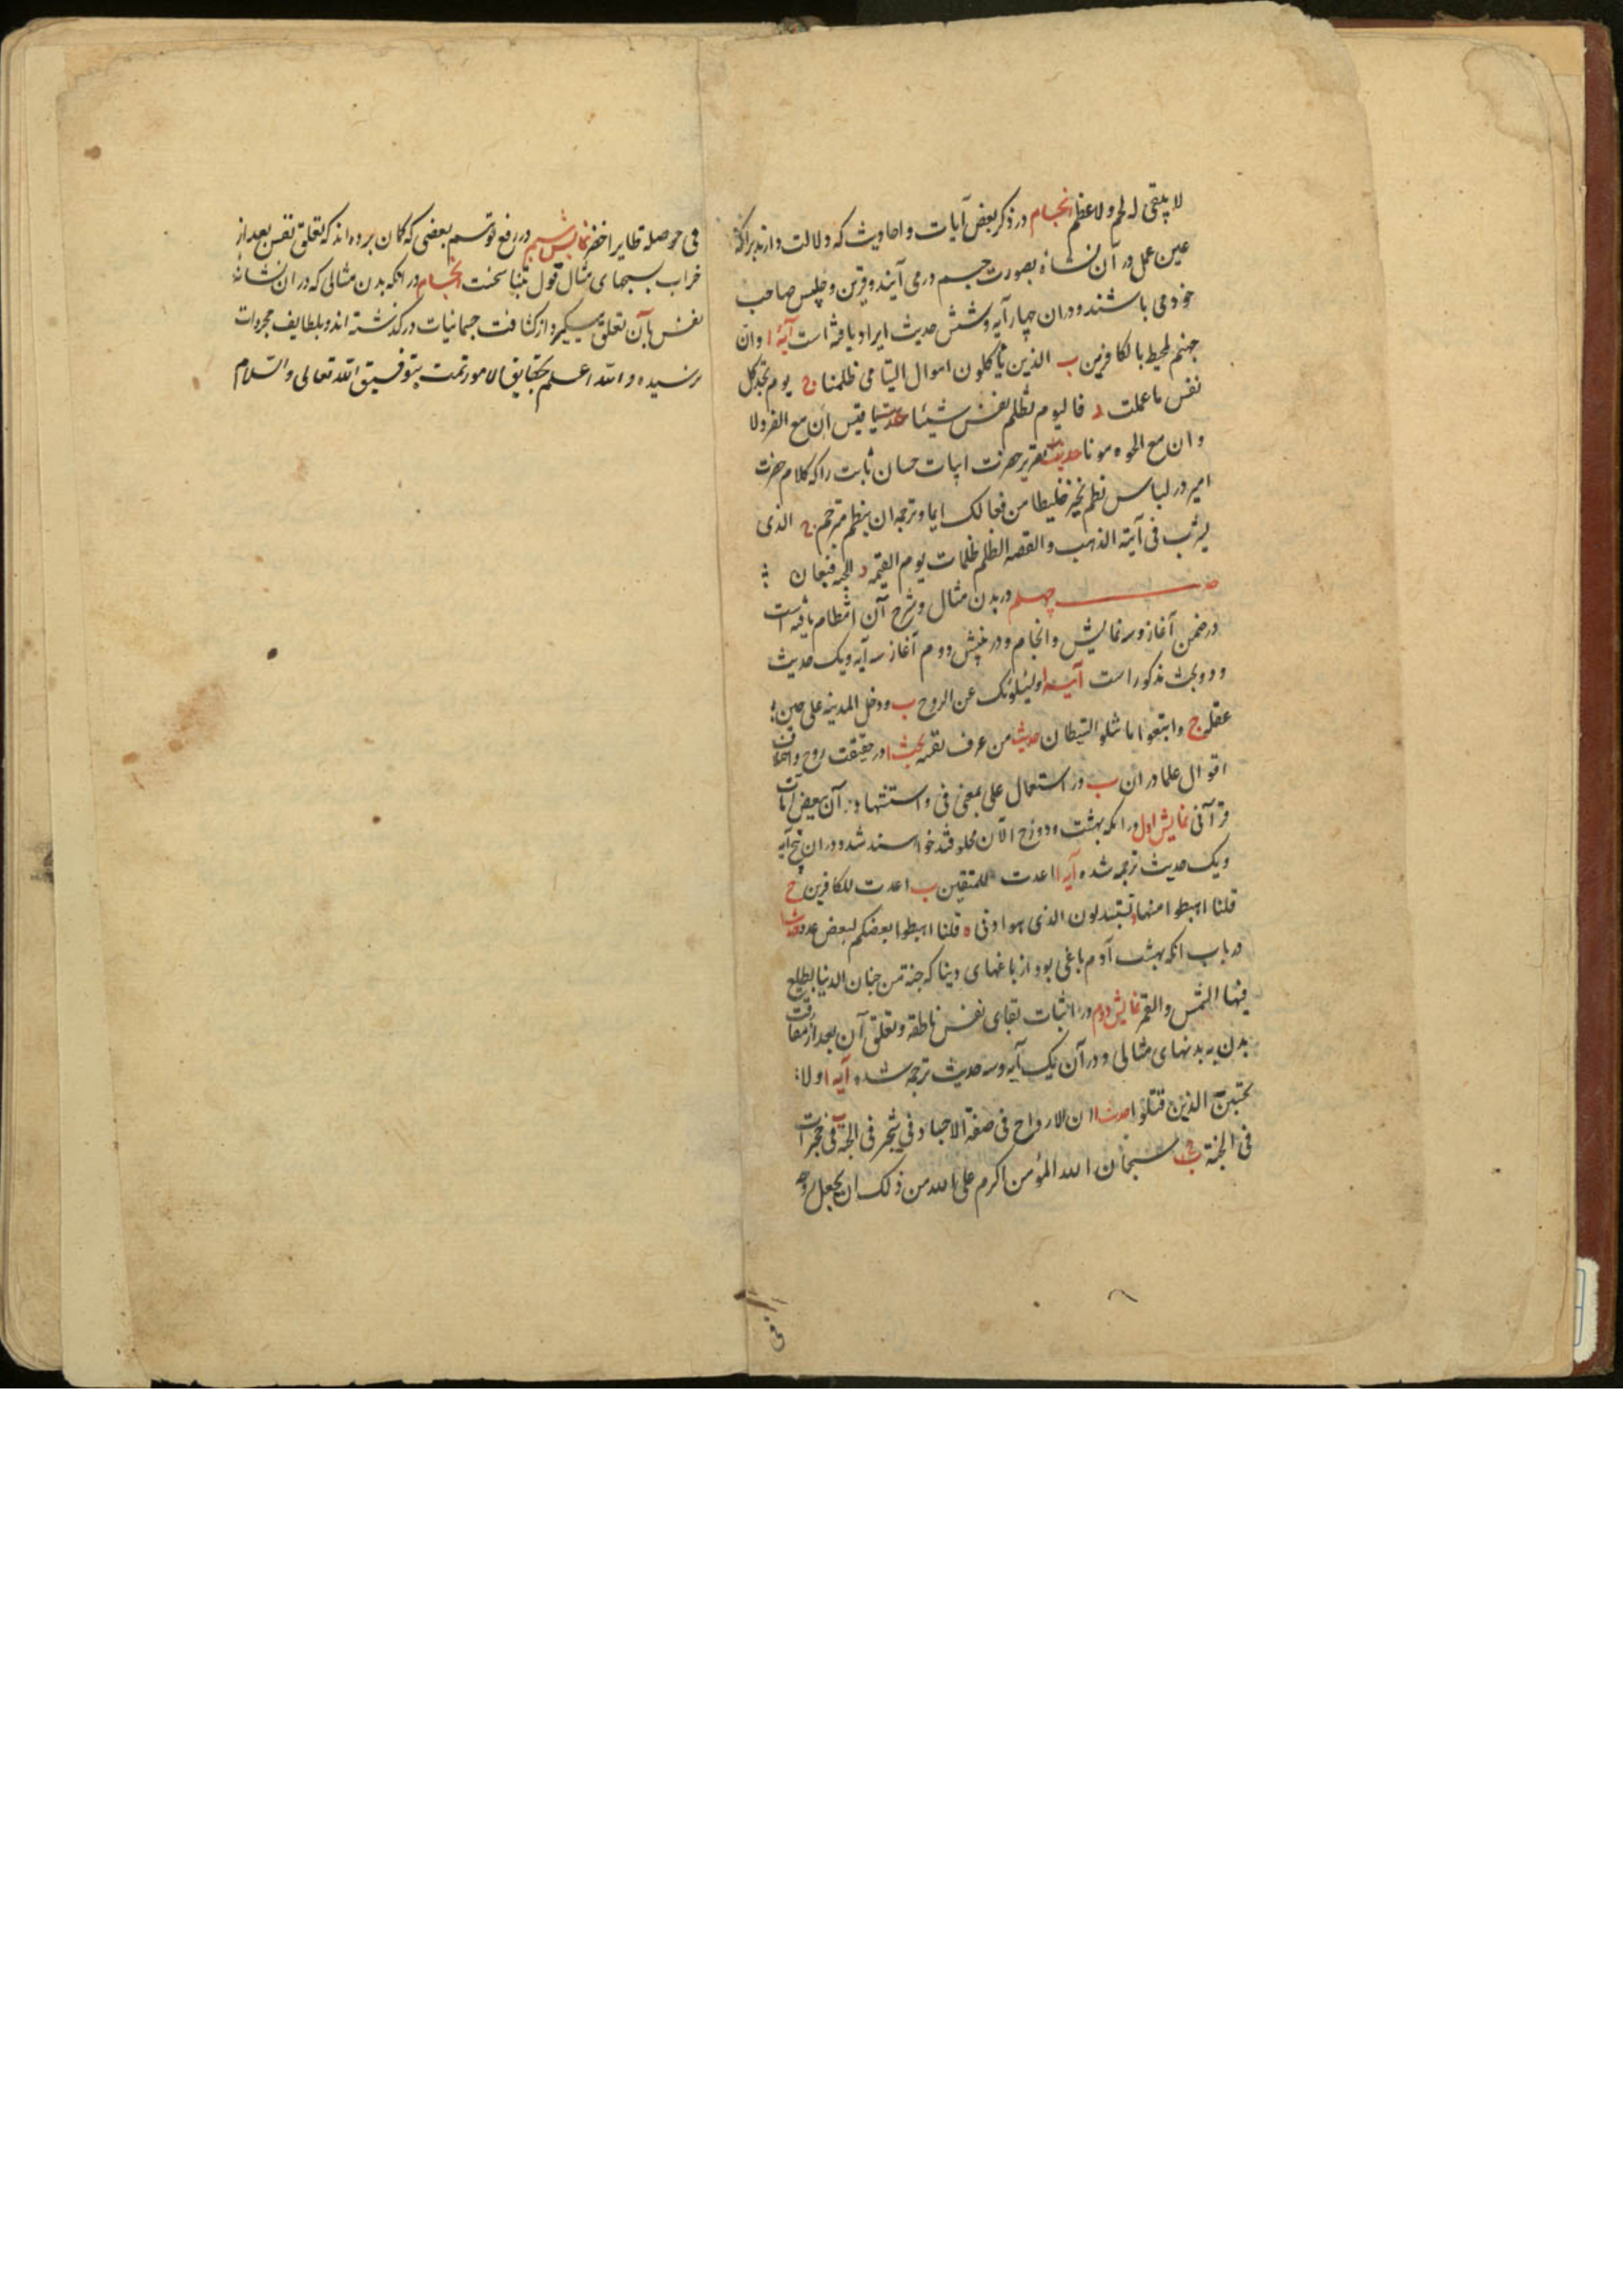 لا یبقی له لحم ولا عظم انجام در ذکر بعض آیات و احادیث که دلالت دارند برآنکه
عین عمل در آن نشاه بصورت جسم درمی آیند و قرین و جلیس صاحب
خود می باشند و دران چهار آیه و شش حدیث ایراد یافته است آیه ا وان
جهنم لمحیط بالکافرین ب الذین یأکلون اموال الیتامی ظلما ج یوم تجد کل
نفس ما عملت د فالیوم تظلم نفس شیئا حدیث یا قیس ان مع العز ذلا
وان مع الحیوه موتا حدیث تقریر حضرت ابیات حسان ثابت را که کلام حضرت
امیر در لباس نظم تخیر خلیطا من فعالک ایما و ترجمه ان بنظم مترجم ج الذی
یشرب فی آنیة الذهب والفضه الظلم ظلمات یوم القیمه د الجنه قیعان
چهلم در بدن مثال و شرح آن انتظام یافته است
در ضمن آغاز و سه نمایش و انجام و در بینش دوم آغاز سه آیه و یک حدیث
و دو بحث مذکور است آیه ا ویسئلونک عن الروح ب ودخل المدینه علی حین
غفله ج واتبعوا ما تتلوا الشیطان حدیث من عرف نفسه بحث ا در حقیقت روح و اختلاف
اقوال علما در ان ب در استعمال علی بمعنی فی و استشهاد بر آن ببعض آیات
قرآنی نمایش اول در انکه بهشت و دوزخ الان مخلوقند خواسند شد و دران پنج آیه
و یک حدیث ترجمه شده آیه ا اعدت للمتقین ب اعدت للکافرین ج
قلنا اهبطوا منها د تستبدلون الذی هو ادنی ه قلنا اهبطوا بعضکم لبعض عدو حدیث
در باب انکه بهشت آدم باغی بود از باغهای دینا که جنة من جنان الدنیا یطلع
فیها الشمس والقمر نمایش دوم در اثبات بقای نفس ناطقه و تعلق آن بعد از مفارقت
بدن به بدنهای مثالی و در آن یک آیه و سه حدیث ترجمه شده آیه ا ولا
تحسبن الذین قتلوا حدیث ا ان الارواح فی صفة الاجساد فی شجر فی الجنة فی حجرات
فی الجنة ب سبحان الله المؤمن اکرم علی الله من ذلک ان یجعل روحه
فی حوصلة طایر اخضر نمایش سیم در رفع توسم بعضی که گمان برده اند که تعلق نفس بعد از
خراب بسبحهای مثال قول بتناسخست انجام در انکه بدن مثالی که در ان نشانه
نفس بآن تعلق میگیرد از کثافت جسمانیات درگذشته اند و بلطایف مجردات
نرسیده و الله اعلم بحقایق الامور تمت بتوفیق الله تعالی والسلام